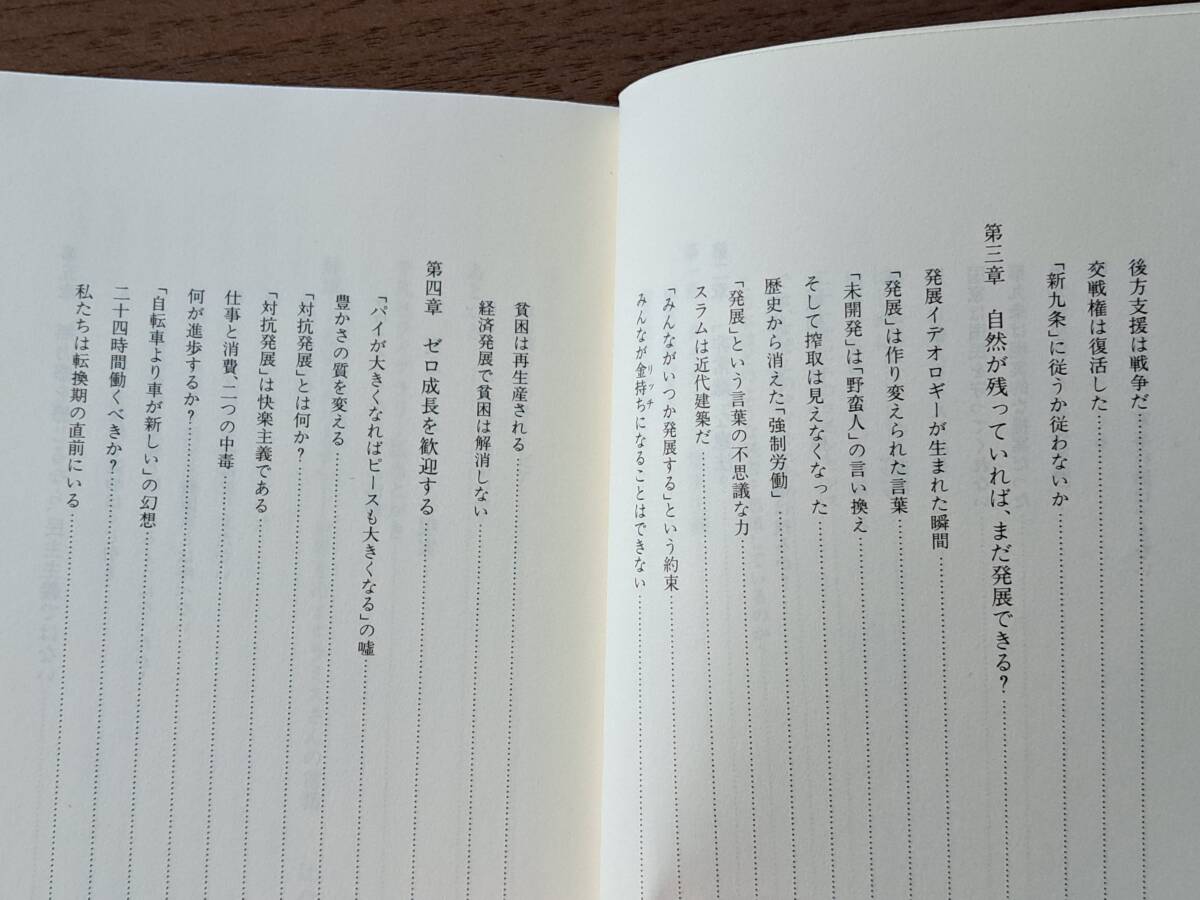 後方支援は戦争だ
交戦権は復活した
「新九条」に従うか従わないか
第三章 自然が残っていれば、まだ発展できる?
発展イデオロギーが生まれた瞬間
「発展」は作り変えられた言葉
「未開発」は「野蛮人」の言い換え
そして搾取は見えなくなった
歴史から消えた「強制労働」
「発展」という言葉の不思議な力
スラムは近代建築だ
「みんながいつか発展する」という約束
みんなが金持ちになることはできない
リッチ
貧困は再生産される
経済発展で貧困は解消しない
第四章 ゼロ成長を歓迎する
「パイが大きくなればピースも大きくなる」の嘘
豊かさの質を変える
「対抗発展」とは何か?
「対抗発展」は快楽主義である
仕事と消費、二つの中毒
何が進歩するか?
「自転車より車が新しい」の幻想
二十四時間働くべきか?
私たちは転換期の直前にいる